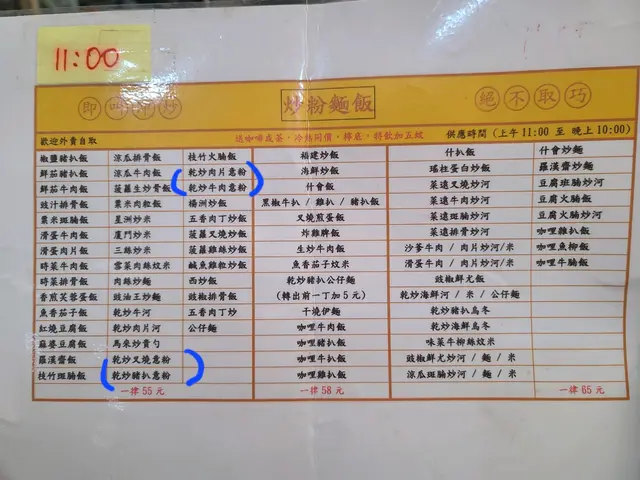 11:00
即叫即炒
炒粉麵飯
絕不取巧
歡迎外賣自取
送咖啡或茶，冷結同價，檸底，特飲加五蚊
供應時間（上午 11:00 至 晚上 10:00）
椒鹽豬扒飯 涼瓜排骨飯 枝竹火腩飯
鮮茄豬扒飯 涼瓜牛肉飯 乾炒肉片意粉
鮮茄牛肉飯 菠蘿生炒骨飯 乾炒牛肉意粉
豉汁排骨飯 粟米肉粒飯 楊洲炒飯
粟米斑腩飯 星洲炒米 五香肉丁炒飯
滑蛋牛肉飯 廈門炒米 菠蘿叉燒炒飯
滑蛋肉片飯 三絲炒米 菠蘿雞絲炒飯
時菜牛肉飯 雪菜肉絲炆米 鹹魚雞粒炒飯
時菜排骨飯 肉絲炒麵 西炒飯
香煎芙蓉蛋飯 豉油王炒麵 豉椒排骨飯
魚香茄子飯 乾炒牛河 五香肉丁炒
紅燒豆腐飯 乾炒肉片河 公仔麵
麻婆豆腐飯 馬來炒貴刁
羅漢齋飯 乾炒叉燒意粉
枝竹斑腩飯 乾炒豬扒意粉
一律 55 元
福建炒飯
海鮮炒飯
什會飯
黑椒牛扒 / 雞扒 / 豬扒飯
叉燒煎蛋飯
炸雞髀飯
生炒牛肉飯
魚香茄子炆米
乾炒豬扒公仔麵
（轉出前一丁加 5 元）
干燒伊麵
咖喱牛肉飯
咖喱豬扒飯
咖喱牛扒飯
咖喱雞扒飯
一律 58 元
什扒飯 什會炒麵
瑤柱蛋白炒飯 羅漢齋炒麵
菜遠叉燒炒河 豆腐班腩炒河
菜遠牛肉炒河 豆腐火腩飯
菜遠斑腩炒河 豆腐斑腩飯
菜遠排骨炒河 咖喱雞飯
沙爹牛肉 / 肉片炒河/米 咖喱魚柳飯
滑蛋牛肉 / 肉片炒河/米 咖喱牛腩飯
豉椒鮮尤飯
乾炒海鮮河 / 米 / 意粉
乾炒豬扒烏冬
乾炒海鮮烏冬
味菜牛柳絲炆米
豉椒鮮尤炒河 / 麵 / 米
涼瓜斑腩炒河 / 麵 / 米
一律 65 元